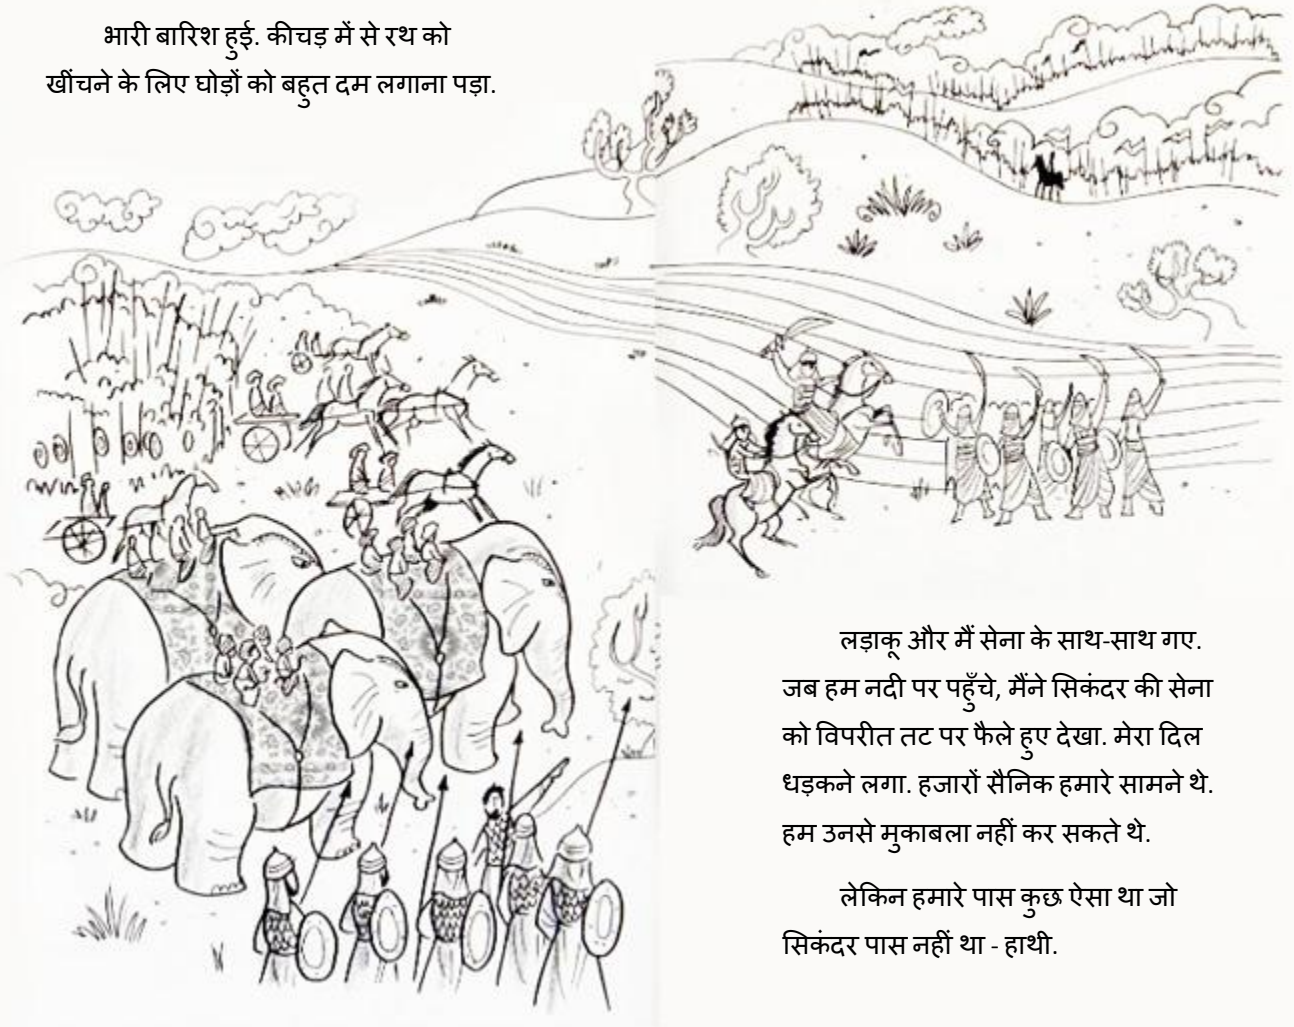 भारी बारिश हुई. कीचड़ में से रथ को
खींचने के लिए घोड़ों को बहुत दम लगाना पड़ा.
लड़ाकू और मैं सेना के साथ-साथ गए.
जब हम नदी पर पहुँचे, मैंने सिकंदर की सेना
को विपरीत तट पर फैले हुए देखा. मेरा दिल
धड़कने लगा. हजारों सैनिक हमारे सामने थे.
हम उनसे मुकाबला नहीं कर सकते थे.
लेकिन हमारे पास कुछ ऐसा था जो
सिकंदर पास नहीं था - हाथी.